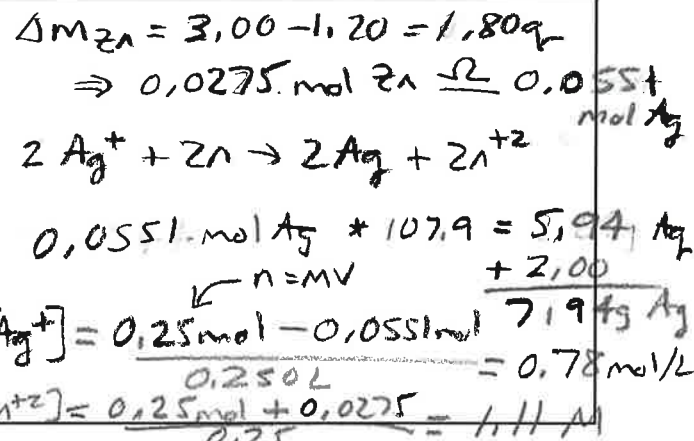 Δm Zn = 3,00 - 1,20 = 1,80g
⇒ 0,0275 mol Zn ≙ 0.0551
mol Ag
2 Ag⁺ + Zn → 2Ag + Zn⁺²
0,0551 mol Ag * 107.9 = 5,94 Ag
n = MV + 2,00
Ag⁺] = 0,25mol - 0,0551mol 7,94g Ag
0.250L = 0.78 mol/L
n⁺²] = 0,25mol + 0,0275 = 1,11 M
0,25